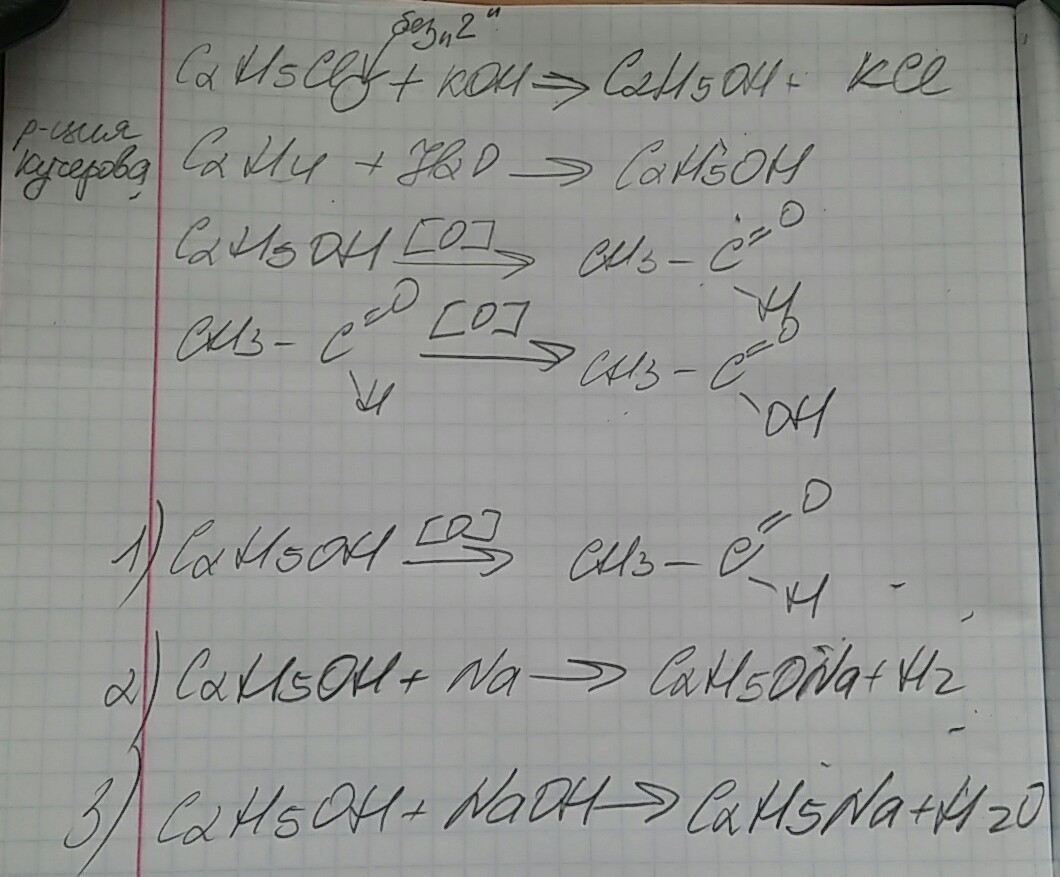 без „2"
C2H5Cl + KOH ⇒ C2H5OH + KCl
р-ция
Кучерова
C2H4 + H2O → C2H5OH
C2H5OH [O]→ CH3 - C =O \H
CH3 - C =O \H [O]→ CH3 - C =O \OH
1) C2H5OH [O]→ CH3 - C =O \H
2) C2H5OH + Na → C2H5ONa + H2
3) C2H5OH + NaOH → C2H5Na + H2O